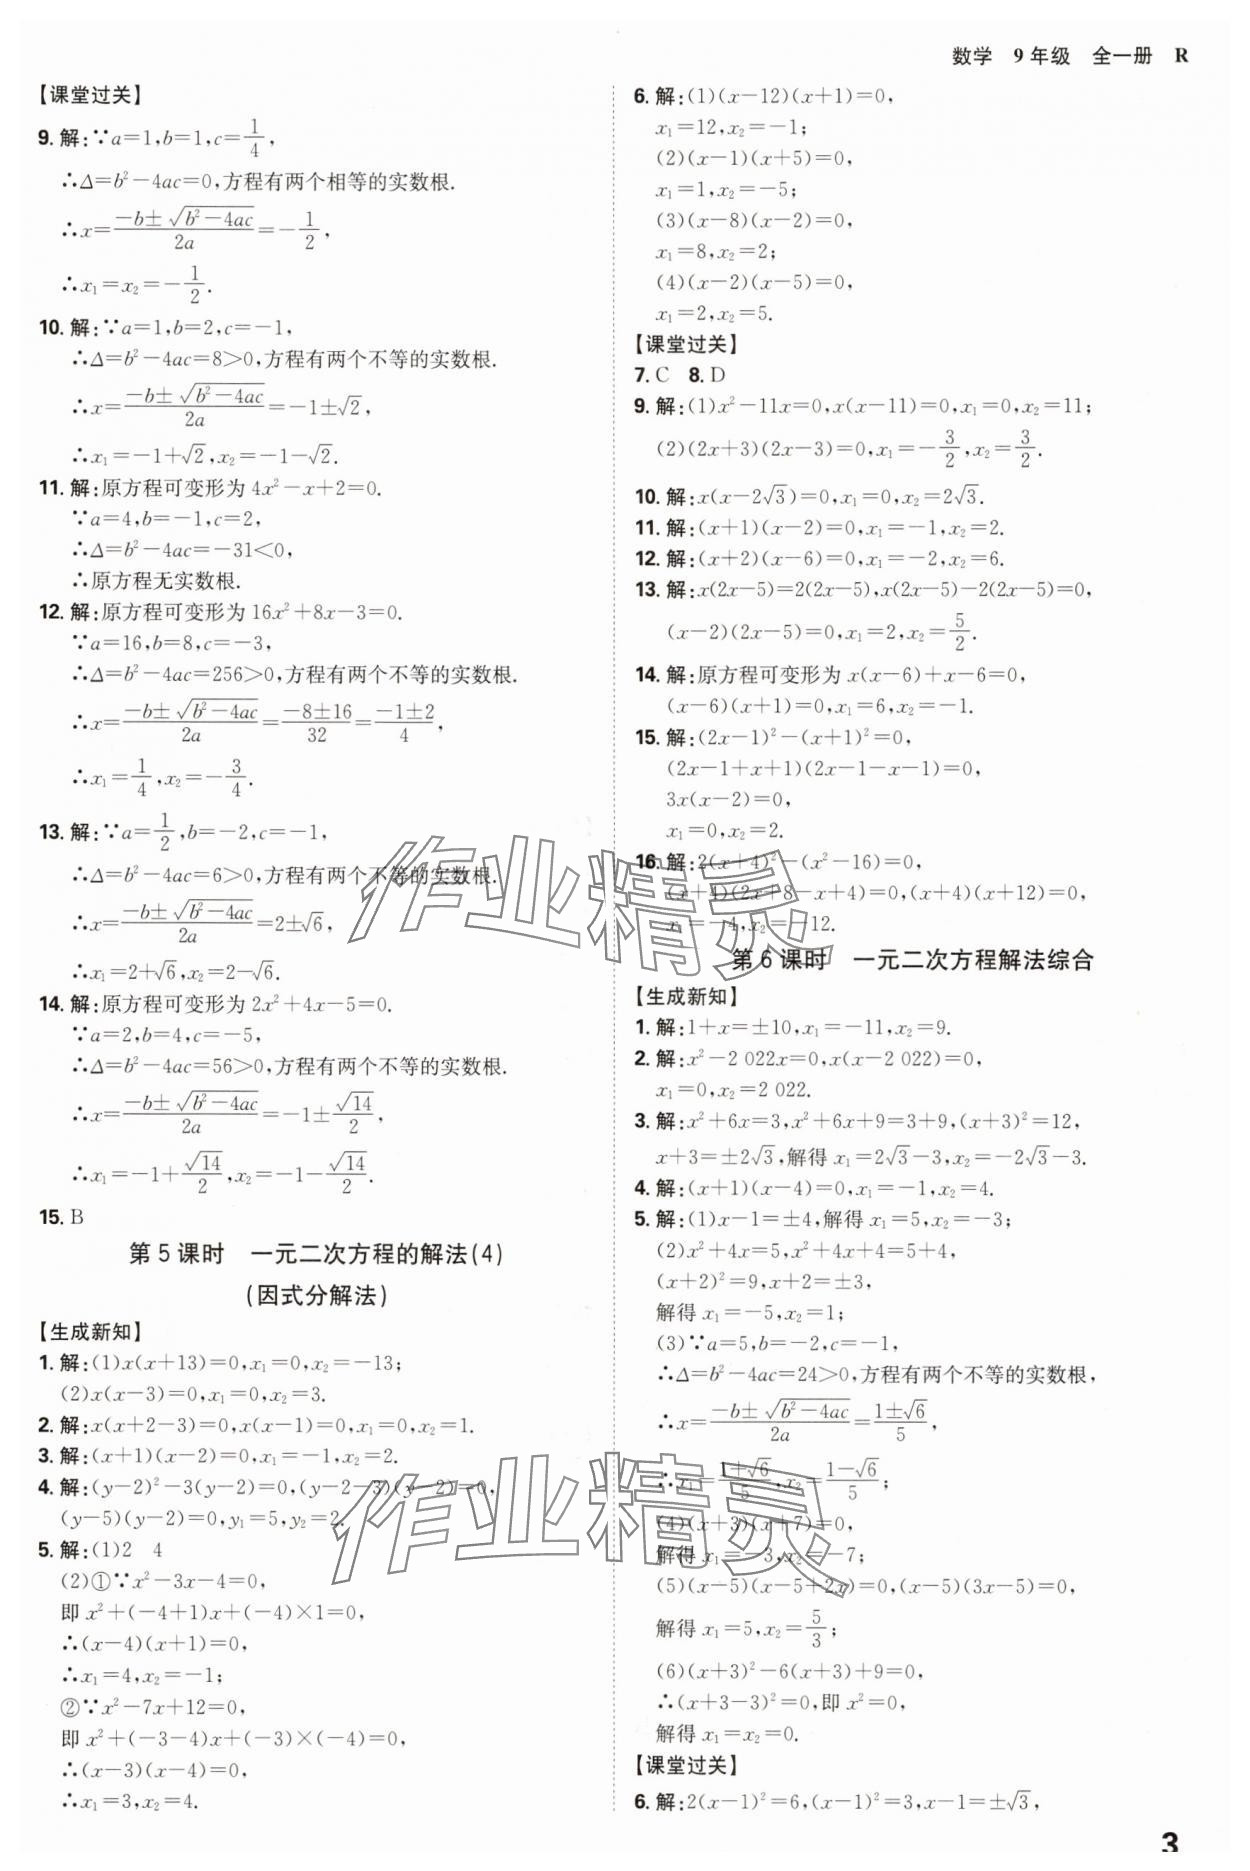 数学 9年级 全一册 R
【课堂过关】
9. 解:∵a=1,b=1,c=1/4,
∴Δ=b²-4ac=0,方程有两个相等的实数根.
∴x=(-b±√(b²-4ac))/2a=-1/2,
∴x₁=x₂=-1/2.
10. 解:∵a=1,b=2,c=-1,
∴Δ=b²-4ac=8>0,方程有两个不等的实数根.
∴x=(-b±√(b²-4ac))/2a=-1±√2,
∴x₁=-1+√2,x₂=-1-√2.
11. 解:原方程可变形为 4x²-x+2=0.
∵a=4,b=-1,c=2,
∴Δ=b²-4ac=-31<0,
∴原方程无实数根.
12. 解:原方程可变形为 16x²+8x-3=0.
∵a=16,b=8,c=-3,
∴Δ=b²-4ac=256>0,方程有两个不等的实数根.
∴x=(-b±√(b²-4ac))/2a=(-8±16)/32=(-1±2)/4,
∴x₁=1/4,x₂=-3/4.
13. 解:∵a=1/2,b=-2,c=-1,
∴Δ=b²-4ac=6>0,方程有两个不等的实数根.
∴x=(-b±√(b²-4ac))/2a=2±√6,
∴x₁=2+√6,x₂=2-√6.
14. 解:原方程可变形为 2x²+4x-5=0.
∵a=2,b=4,c=-5,
∴Δ=b²-4ac=56>0,方程有两个不等的实数根.
∴x=(-b±√(b²-4ac))/2a=-1±√14/2,
∴x₁=-1+√14/2,x₂=-1-√14/2.
15. B
第 5 课时 一元二次方程的解法(4)
(因式分解法)
【生成新知】
1. 解:(1)x(x+13)=0,x₁=0,x₂=-13;
(2)x(x-3)=0,x₁=0,x₂=3.
2. 解:x(x+2-3)=0,x(x-1)=0,x₁=0,x₂=1.
3. 解:(x+1)(x-2)=0,x₁=-1,x₂=2.
4. 解:(y-2)²-3(y-2)=0,(y-2-3)(y-2)=0,
(y-5)(y-2)=0,y₁=5,y₂=2.
5. 解:(1)2 4
(2)①∵x²-3x-4=0,
即 x²+(-4+1)x+(-4)×1=0,
∴(x-4)(x+1)=0,
∴x₁=4,x₂=-1;
②∵x²-7x+12=0,
即 x²+(-3-4)x+(-3)×(-4)=0,
∴(x-3)(x-4)=0,
∴x₁=3,x₂=4.
6. 解:(1)(x-12)(x+1)=0,
x₁=12,x₂=-1;
(2)(x-1)(x+5)=0,
x₁=1,x₂=-5;
(3)(x-8)(x-2)=0,
x₁=8,x₂=2;
(4)(x-2)(x-5)=0,
x₁=2,x₂=5.
【课堂过关】
7. C 8. D
9. 解:(1)x²-11x=0,x(x-11)=0,x₁=0,x₂=11;
(2)(2x+3)(2x-3)=0,x₁=-3/2,x₂=3/2.
10. 解:x(x-2√3)=0,x₁=0,x₂=2√3.
11. 解:(x+1)(x-2)=0,x₁=-1,x₂=2.
12. 解:(x+2)(x-6)=0,x₁=-2,x₂=6.
13. 解:x(2x-5)=2(2x-5),x(2x-5)-2(2x-5)=0,
(x-2)(2x-5)=0,x₁=2,x₂=5/2.
14. 解:原方程可变形为 x(x-6)+x-6=0,
(x-6)(x+1)=0,x₁=6,x₂=-1.
15. 解:(2x-1)²-(x+1)²=0,
(2x-1+x+1)(2x-1-x-1)=0,
3x(x-2)=0,
x₁=0,x₂=2.
16. 解:2(x+4)²-(x²-16)=0,
(x+4)(2x+8-x+4)=0,(x+4)(x+12)=0,
x₁=-4,x₂=-12.
第 6 课时 一元二次方程解法综合
【生成新知】
1. 解:1+x=±10,x₁=-11,x₂=9.
2. 解:x²-2 022x=0,x(x-2 022)=0,
x₁=0,x₂=2 022.
3. 解:x²+6x=3,x²+6x+9=3+9,(x+3)²=12,
x+3=±2√3,解得 x₁=2√3-3,x₂=-2√3-3.
4. 解:(x+1)(x-4)=0,x₁=-1,x₂=4.
5. 解:(1)x-1=±4,解得 x₁=5,x₂=-3;
(2)x²+4x=5,x²+4x+4=5+4,
(x+2)²=9,x+2=±3,
解得 x₁=-5,x₂=1;
(3)∵a=5,b=-2,c=-1,
∴Δ=b²-4ac=24>0,方程有两个不等的实数根,
∴x=(-b±√(b²-4ac))/2a=(1±√6)/5,
∴x₁=(1+√6)/5,x₂=(1-√6)/5;
(4)(x+3)(x+7)=0,
解得 x₁=-3,x₂=-7;
(5)(x-5)(x-5+2x)=0,(x-5)(3x-5)=0,
解得 x₁=5,x₂=5/3;
(6)(x+3)²-6(x+3)+9=0,
∴(x+3-3)²=0,即 x²=0,
解得 x₁=x₂=0.
【课堂过关】
6. 解:2(x-1)²=6,(x-1)²=3,x-1=±√3,
3
作业精灵
作业精灵